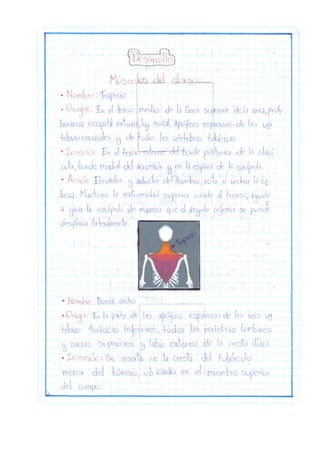 Desarrollo
Músculos del dorso
• Nombre: Trapecio
• Origen: En el tercio medio de la línea superior de la nuca, protu
berancia occipital externa, lig nucal, apófisis espinosas de las vér
tebras cervicales y de todas las vértebras torácicas
• Inserción: En el tercio externo del borde posterior de la claví
cula, borde medial del acromion y en la espina de la escápula.
• Acción: Elevador y aductor del hombro, rota e inclina la ca
beza. Mantiene la extremidad superior unida al tronco, ayuda
a girar la escápula de manera que el ángulo inferior se puede
desplazar lateralmente.
Trapecio
• Nombre: Dorsal ancho
• Origen: En la parte de las apófisis espinosas de las seis vér
tebras torácicas inferiores, todas las vertebras lumbares
y sacras superiores y labio externo de la cresta ilíaca
• Inserción: Se inserta en la cresta del tubérculo
menor del húmero, ubicado en el miembro superior
del cuerpo.